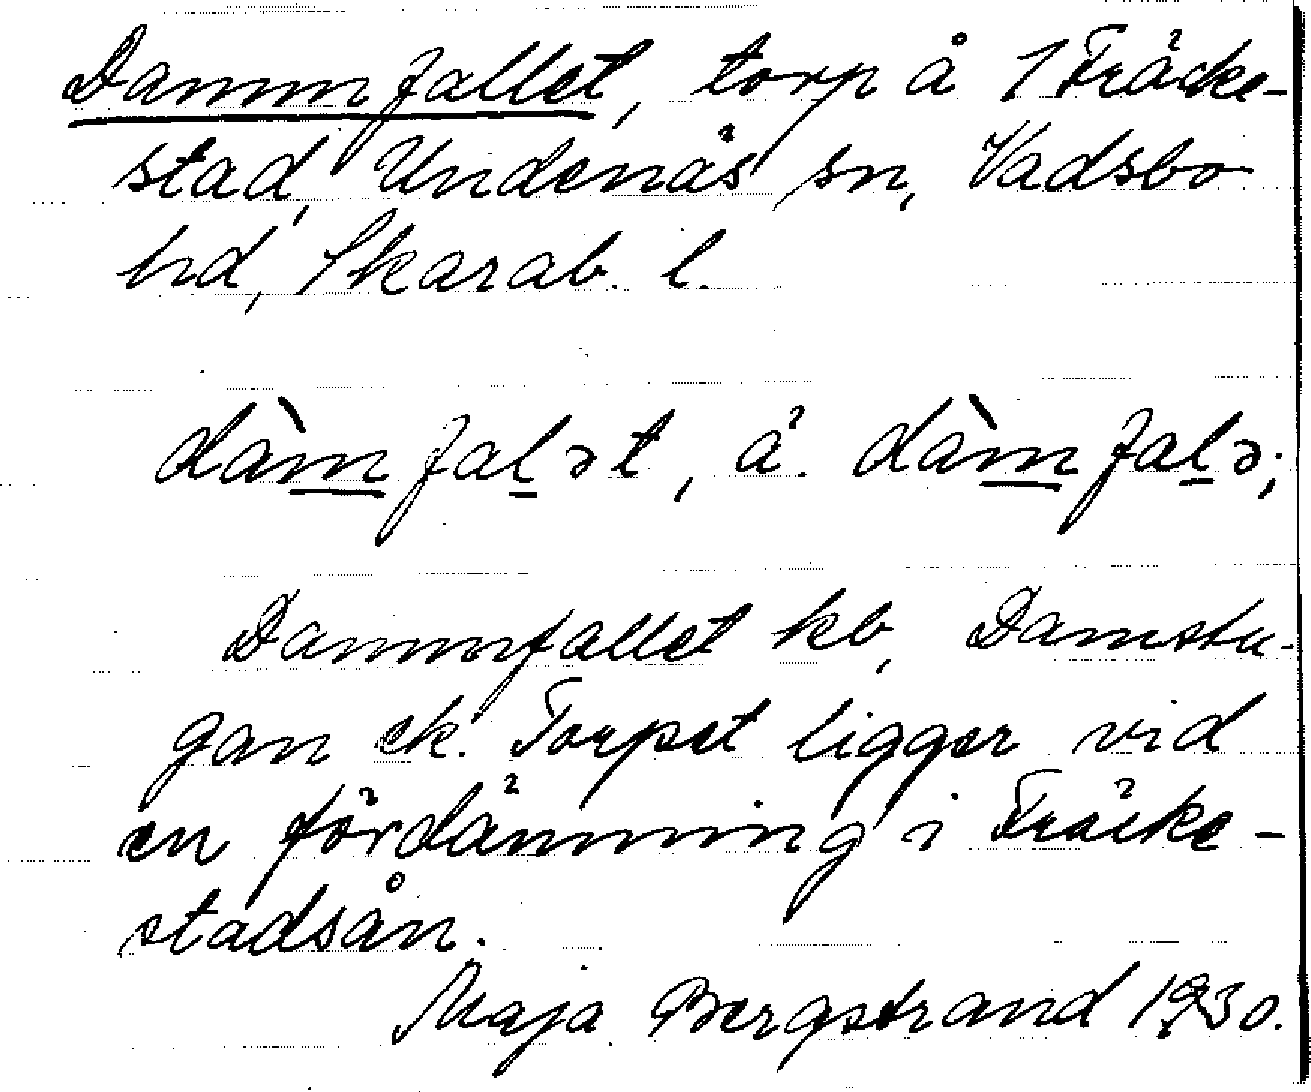 Dammfallet, torp å 1 Fräcke-
stad, Undenäs sn, Vadsbo
hd, Skarab. l.
dàmfalət, ä. dàmfalə;
Dammfallet kb, Damstu-
gan ek. Torpet ligger vid
en fördämning i Fräcke-
stadsån.
Maja Bergstrand 1930.